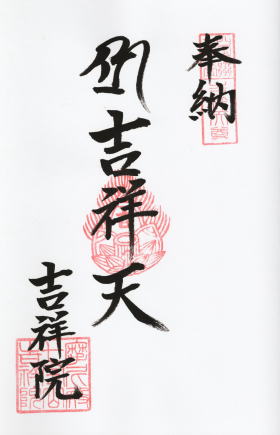 奉納
吉祥天
吉祥院